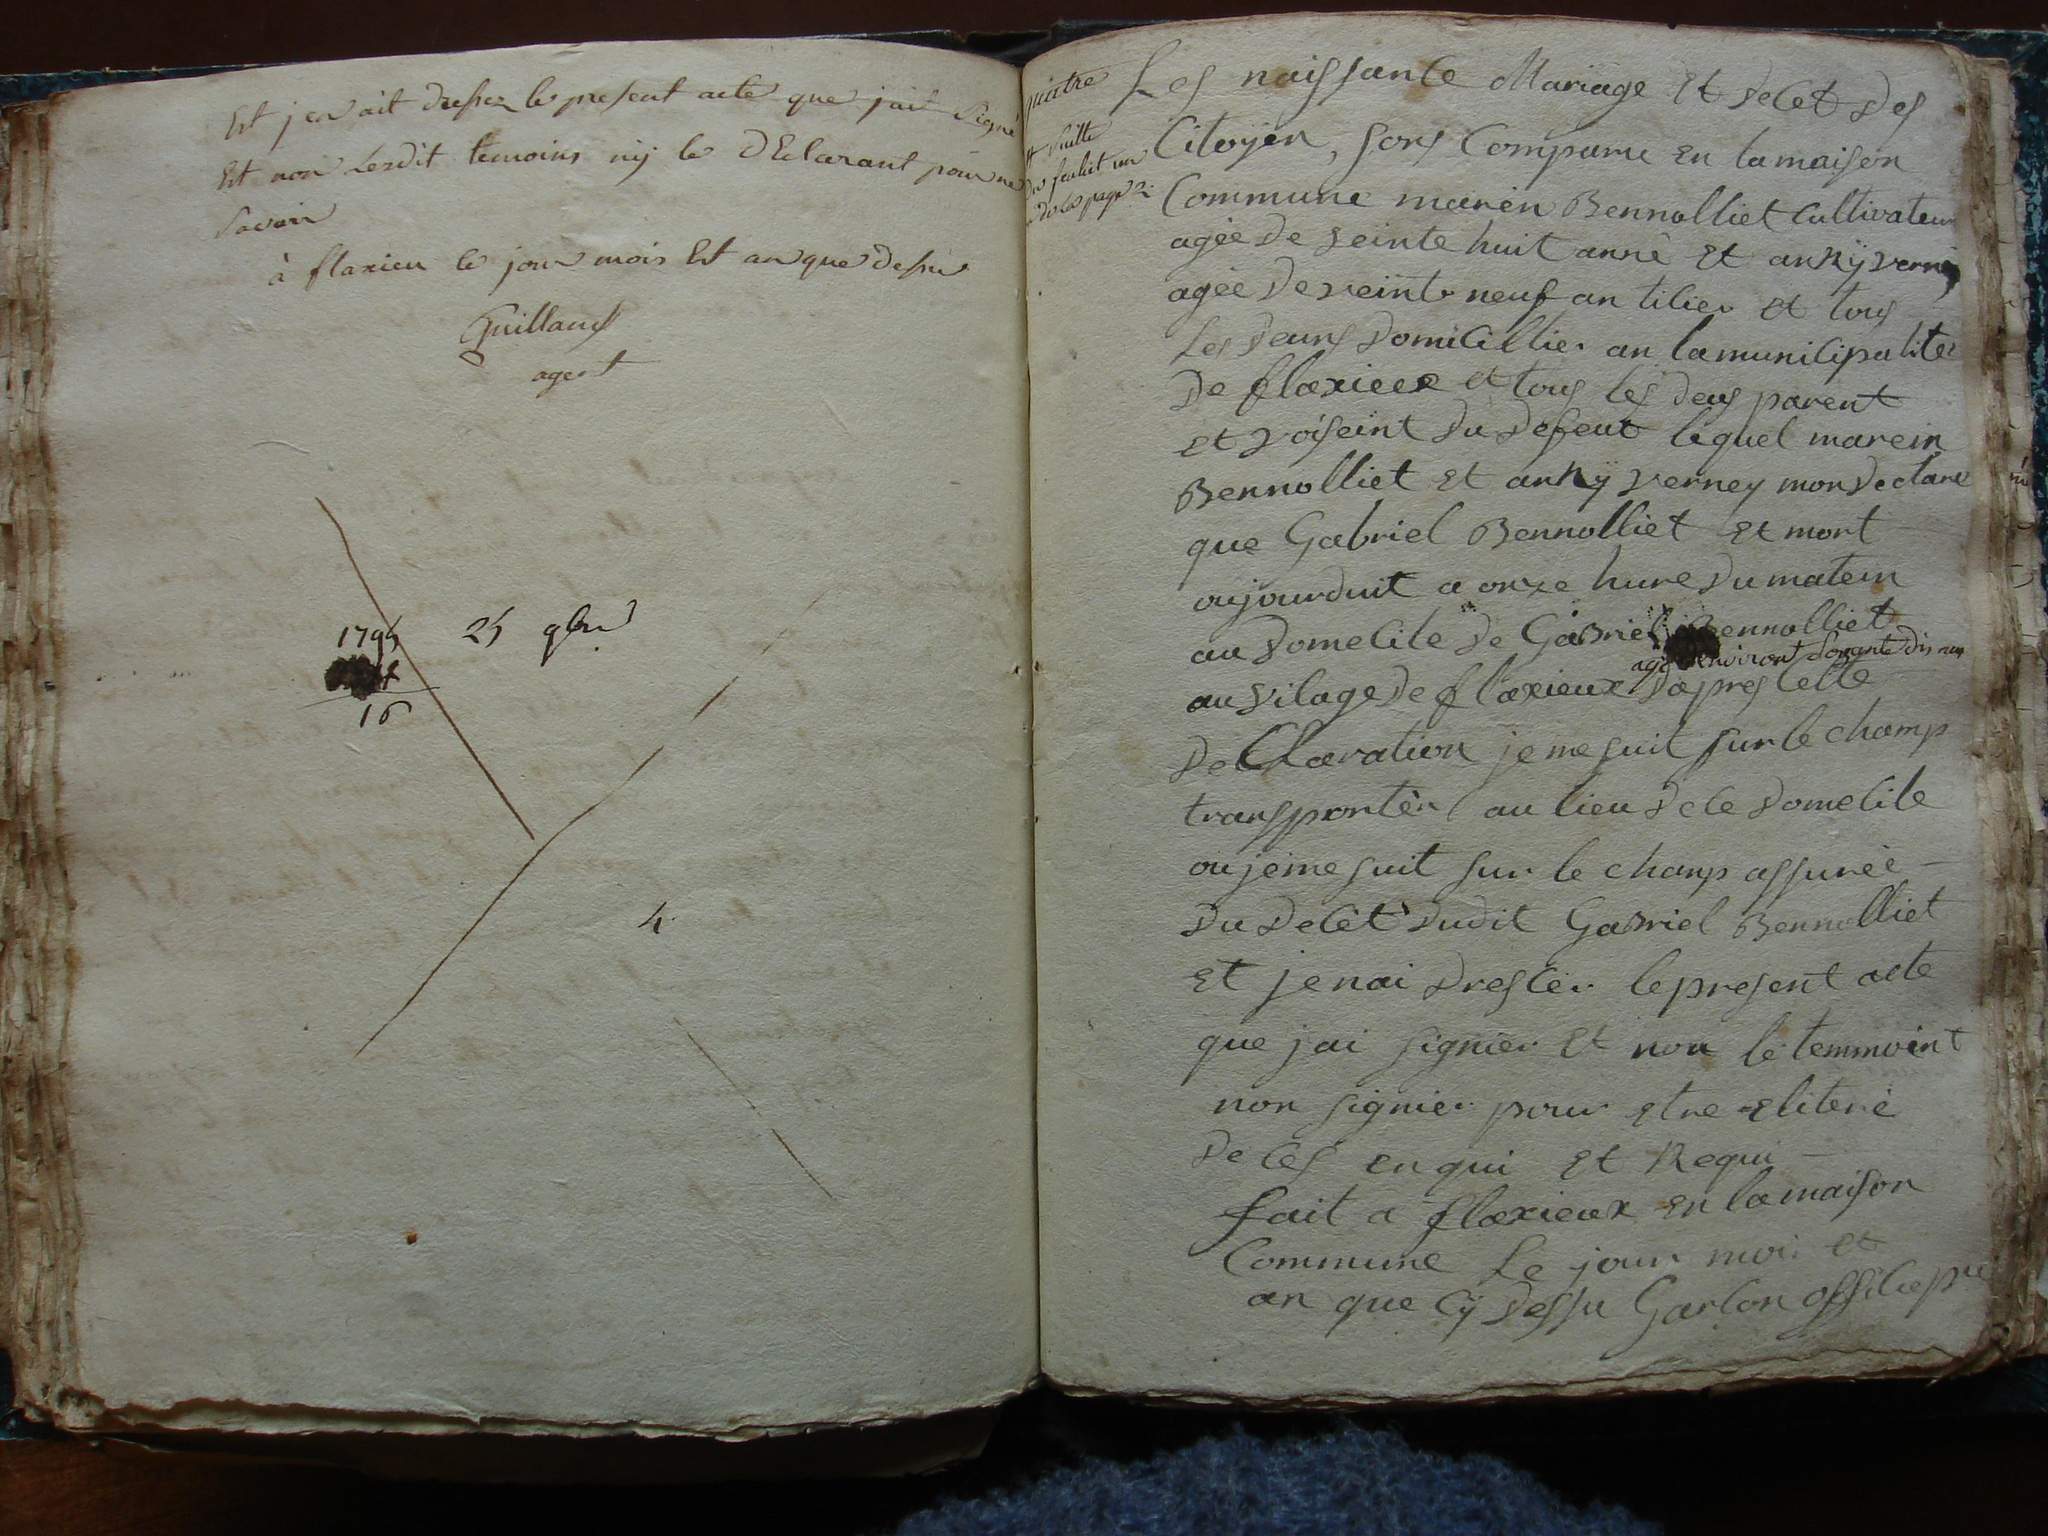 Est jen ait dressez le present acte que jait Signé
Est non Lesdit temoins nij le dEclarant pour ne
Savoir
à flaxieu le jour mois Est an que dessu
Guilland
agent
1795 25 9bre
16
4
quatre
et Suitte
du feuliet un
de la page 2
Les naissante Mariage Et decet des
Citoyen, sons Comparu En la maison
Commune marein Bennolliet Cultivateur
agée de veinte huit anné Et anny verney
agée de veinte neuf an tilier et tous
Les deuns domicillier an la municipalitez
de flaxieux et tous les deus parent
et voiseint du defeut lequel marein
Bennolliet Et anny verney mon declare
que Gabriel Bennolliet Et mort
oujourduit a onze hure du matein
au domecile de Gabriel Bennolliet
agé environt soixante dis neu
au vilage de flaxieux dapres cette
declaration je me suit sur le champ
transportér au lieu de ce domecile
ou je me suit sur le champ assurée
du decét dudit Gabriel Bennolliet
Et je nai drescer le present acte
que jai signier Et non le temmoint
non signier pour Etre Eliteré
de ces en qui Et Requi
fait a flaxieux En la maison
Commune Le jour moi et
an que Cÿ dessu Garlon officiepu